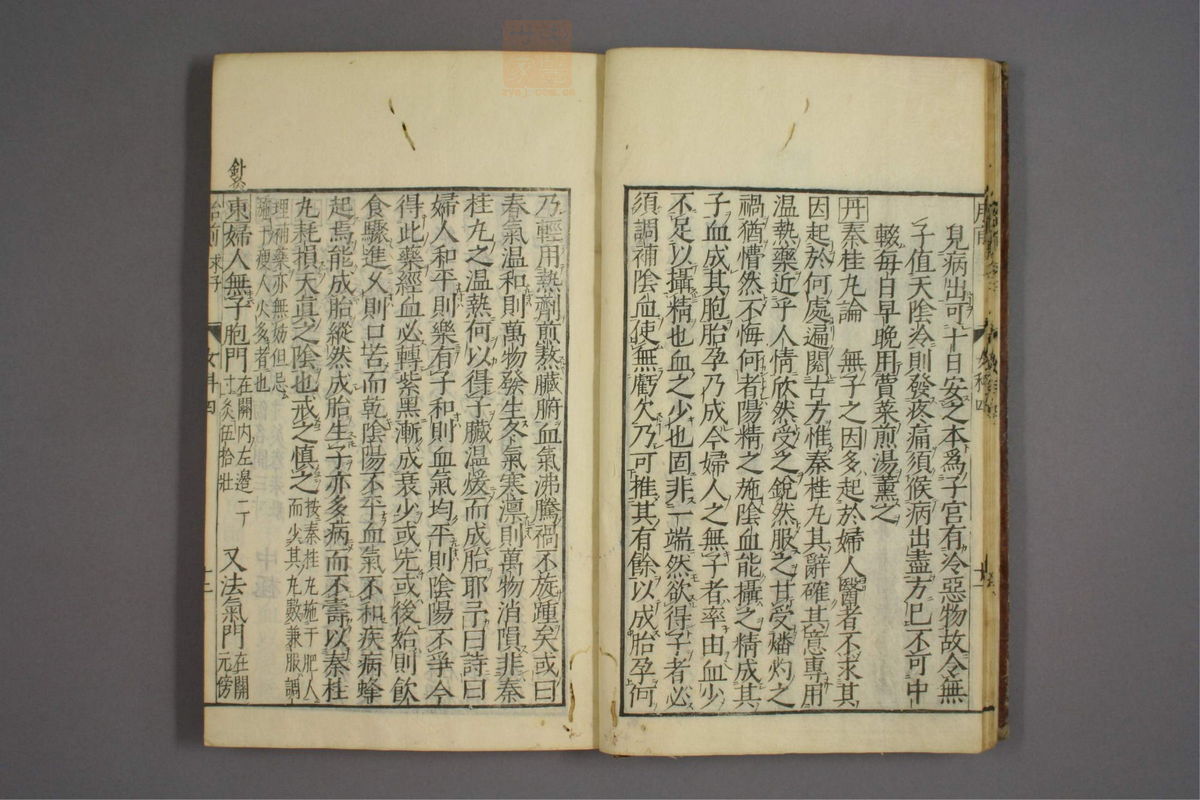 兒病出可十日安之本爲子宮有冷惡物故令無
子値天陰冷則發疼痛須候病出盡方已不可中
輟每日早晚用賣菜煎湯薰之
丹秦桂丸論 無子之因多起於婦人醫者不求其
因起於何處遍閱古方惟秦桂丸其辭確其意專用
温熱藥近乎人情欣然受之銳然服之甘受燔灼之
禍猶懵然不悔何者陽精之施陰血能攝之精成其
子血成其胞胎孕乃成今婦人之無子者率由血少
不足以攝精也血之少也固非一端然欲得子者必
須調補陰血使無虧欠乃可推其有餘以成胎孕何
乃輕用熱劑煎熬臟腑血氣沸騰禍不旋踵矣或曰
春氣温和則萬物發生冬氣寒凛則萬物消隕非秦
桂丸之温熱何以得子臟温煖而成胎耶予曰詩曰
婦人和平則樂有子和則血氣均平則陰陽不爭今
得此藥經血必轉紫黑漸成衰少或先或後始則飲
食驟進久則口苦而乾陰陽不平血氣不和疾病蜂
起焉能成胎縱然成胎生子亦多病而不壽以秦桂
丸耗損天真之陰也戒之愼之 按秦桂丸施于肥人
而少其丸數兼服調
理補藥亦無妨但忌
施于瘦人火多者也
鍼灸
東婦人無子胞門 在關内左邊二
寸灸伍拾壯
又法氣門 在關
元傍
胎前 求子
女科四